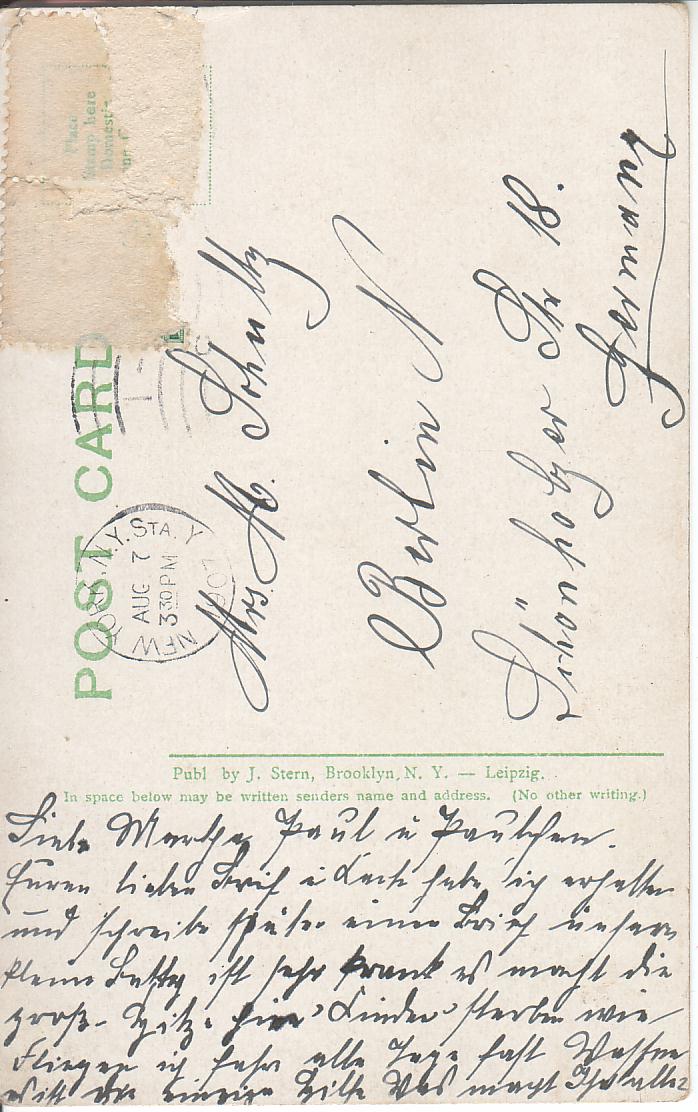 Place
Stamp here
Domestic
POST CARD
NEW YORK, N.Y. STA. Y
AUG 7
3 30 PM
1907
Mrs. M. Schultz
Berlin N
Schönholzer Str 18.
Germany
Publ by J. Stern, Brooklyn, N. Y. — Leipzig.
In space below may be written senders name and address. (No other writing.)
Liebe Marthe, Paul u Paulchen.
Euren lieben Brief u Karte habe ich erhalten
und schreibe später einen Brief unsere
kleine Betty ist sehr krank es macht die
große Hitze hier Kinder sterben wie
Fliegen ich fahre alle Tage fast Wasser
es ist die einzige Hilfe Was macht Ihr alle?